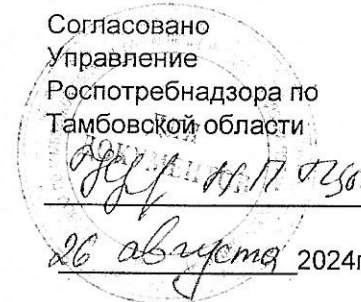 Согласовано
Управление
Роспотребнадзора по
Тамбовской области
ДЛЯ
ДОКУМЕНТОВ
Н.П.
26 августа 2024г